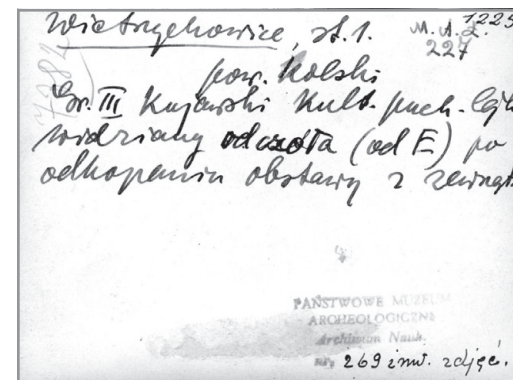 Wietrzychowice, st. 1.
M.A.Ł. 1225
227
7984
pow. Kolski
Gr. III Kujawski Kult. puch. lejk
widziany od czoła (od E) po
odkopaniu obstawy z zewnąt
PAŃSTWOWE MUZEUM
ARCHEOLOGICZNE
Archiwum Nauk.
269 inw. zdjęć.